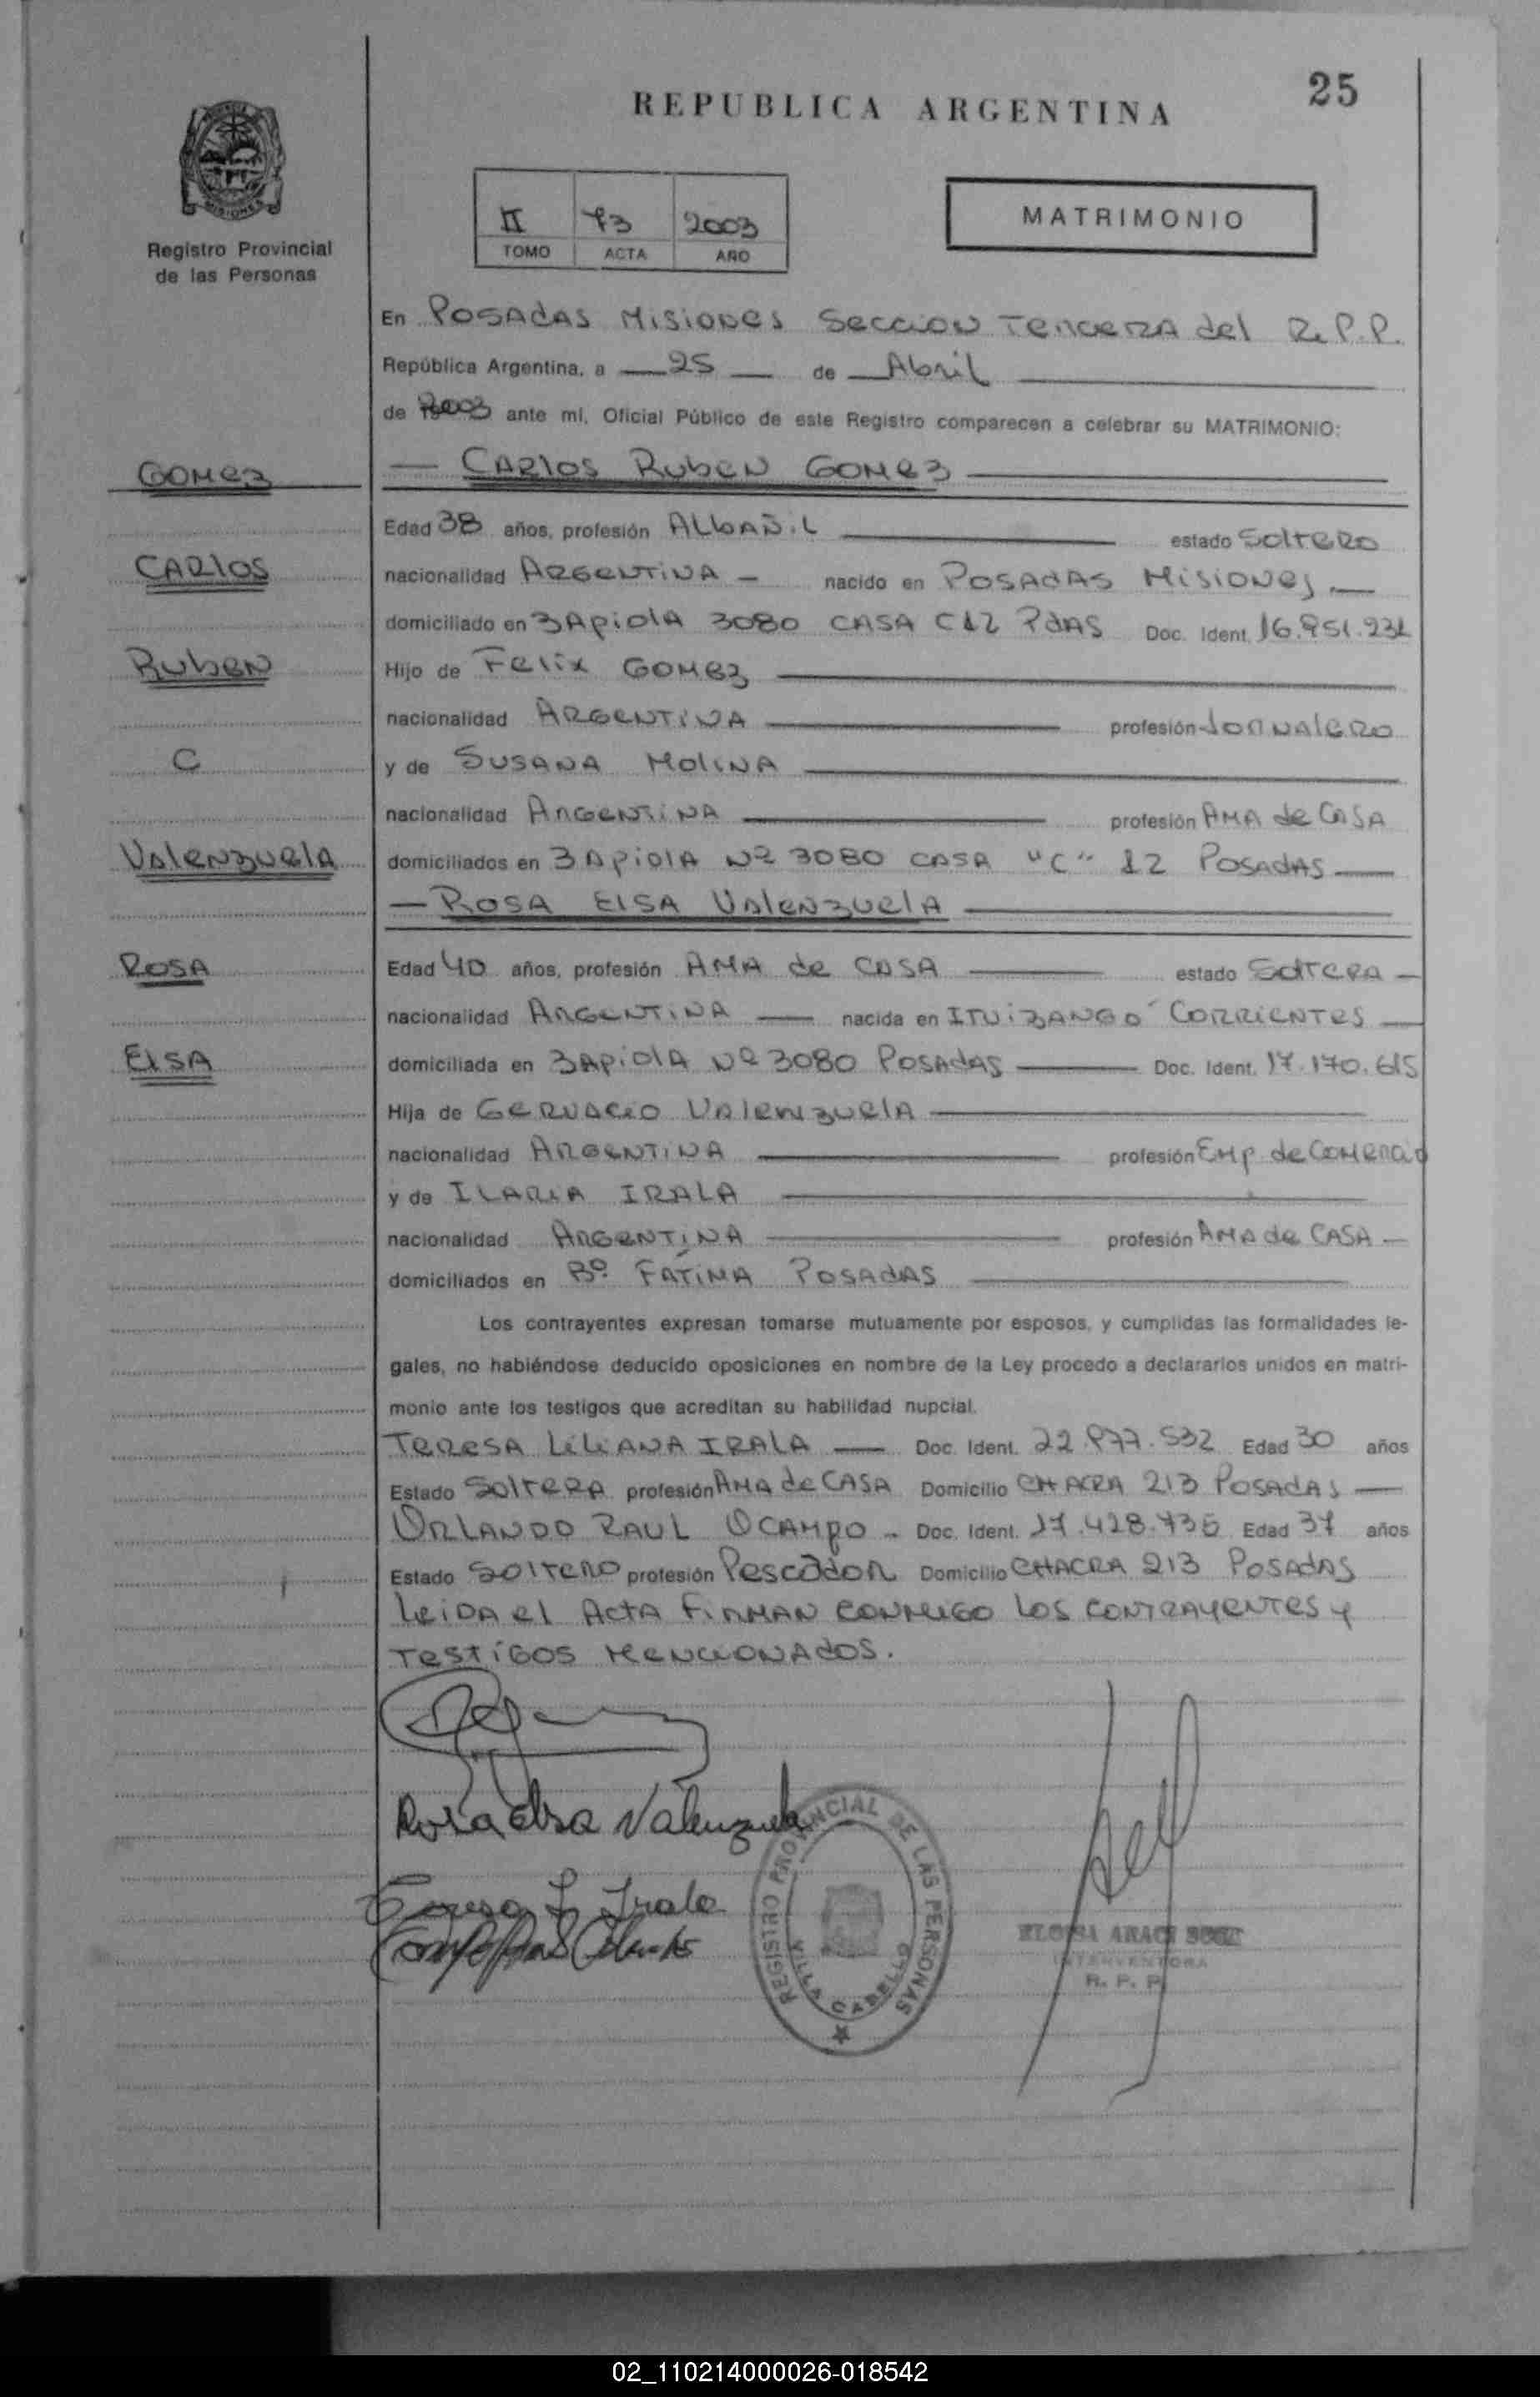 25
REPUBLICA ARGENTINA
II 73 2003
TOMO ACTA AÑO
MATRIMONIO
Registro Provincial
de las Personas
En POSADAS MISIONES SECCION TERCERA del R.P.P.
República Argentina, a 25 de Abril
de 2003 ante mí, Oficial Público de este Registro comparecen a celebrar su MATRIMONIO:
GOMEZ
CARLOS RUBEN GOMEZ
Edad 38 años, profesión ALBAÑIL estado SOLTERO
CARLOS
nacionalidad ARGENTINA nacido en POSADAS MISIONES
domiciliado en ZAPIOLA 3080 CASA C12 PDAS Doc. Ident. 16.951.931
RUBEN
Hijo de FELIX GOMEZ
nacionalidad ARGENTINA profesión JORNALERO
C
y de SUSANA MOLINA
nacionalidad ARGENTINA profesión AMA de CASA
VALENZUELA
domiciliados en ZAPIOLA Nº 3080 CASA "C" 12 POSADAS
ROSA ELSA VALENZUELA
ROSA
Edad 40 años, profesión AMA de CASA estado SOLTERA
nacionalidad ARGENTINA nacida en ITUIZANGO CORRIENTES
ELSA
domiciliada en ZAPIOLA Nº 3080 POSADAS Doc. Ident. 17.170.615
Hija de GERVACIO VALENZUELA
nacionalidad ARGENTINA profesión EMP. de COMERCIO
y de ILARIA IRALA
nacionalidad ARGENTINA profesión AMA de CASA
domiciliados en Bº FATIMA POSADAS
Los contrayentes expresan tomarse mutuamente por esposos, y cumplidas las formalidades le-
gales, no habiéndose deducido oposiciones en nombre de la Ley procedo a declararlos unidos en matri-
monio ante los testigos que acreditan su habilidad nupcial.
TERESA LILIANA IRALA Doc. Ident. 22.977.532 Edad 30 años
Estado SOLTERA profesión AMA de CASA Domicilio CHACRA 213 POSADAS
ORLANDO RAUL OCAMPO Doc. Ident. 17.428.735 Edad 37 años
Estado SOLTERO profesión PESCADOR Domicilio CHACRA 213 POSADAS
LEIDA el ACTA FIRMAN CONMIGO LOS CONTRAYENTES y
TESTIGOS MENCIONADOS.
Rosa Elsa Valenzuela
Teresa L Irala
REGISTRO PROVINCIAL DE LAS PERSONAS
VILLA CABELLO
INTERVENTORA
R. P. P.
02_110214000026-018542